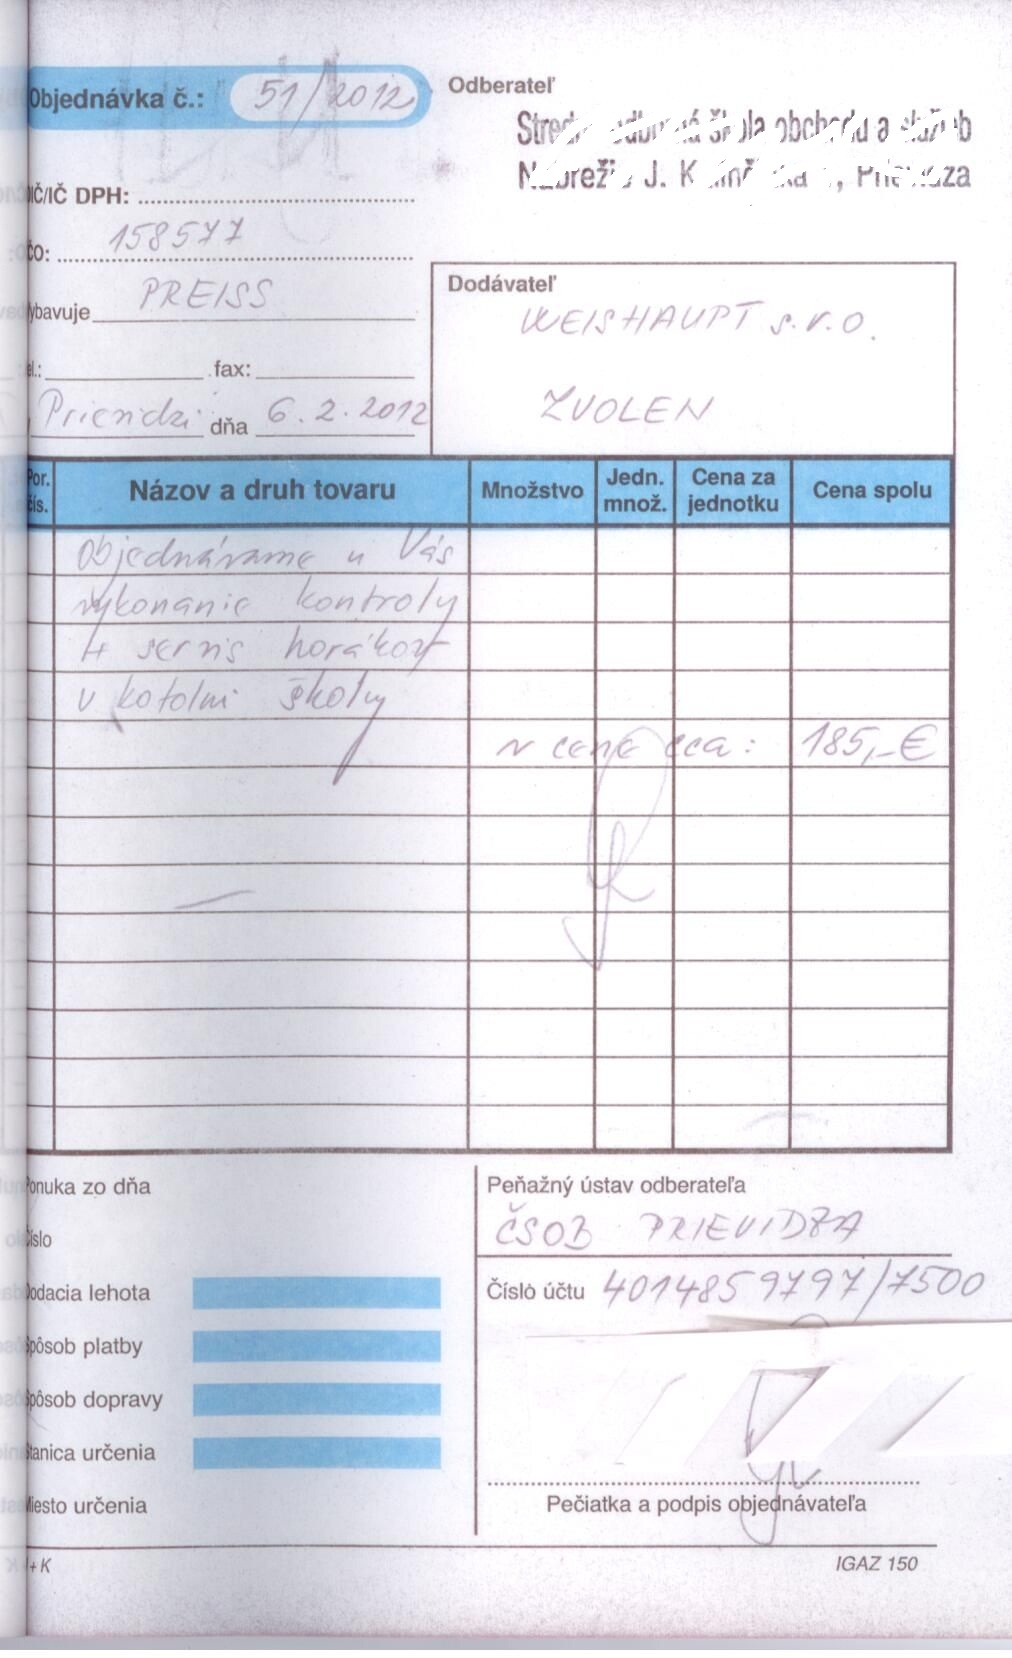 Objednávka č.: 51/2012
Odberateľ
Stredná odborná škola obchodu a služieb
Nábrežie J. Kalinčiaka , Prievidza
IČ/IČ DPH:
ČO: 158577
ybavuje PREISS
el.: fax:
Prievidzi dňa 6.2.2012
Dodávateľ
WEISHAUPT s.r.o.
ZVOLEN
Por. čís. Názov a druh tovaru Množstvo Jedn. množ. Cena za jednotku Cena spolu
Objednávame u Vás
vykonanie kontroly
+ servis horákov
v kotolni školy
v cene cca: 185,-€
Ponuka zo dňa
íslo
Dodacia lehota
pôsob platby
pôsob dopravy
tanica určenia
Miesto určenia
Peňažný ústav odberateľa
ČSOB PRIEVIDZA
Číslo účtu 4014859797/7500
Pečiatka a podpis objednávateľa
+ K
IGAZ 150